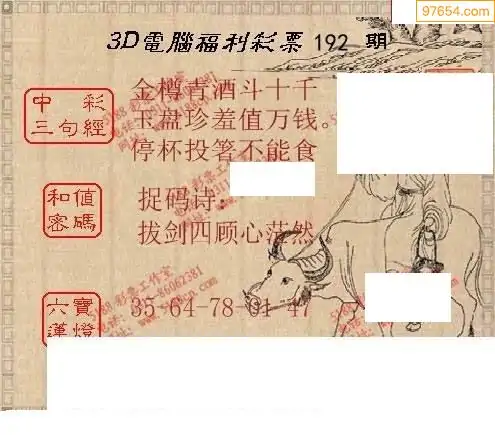 97654.com
3D電腦福利彩票 192 期
中彩三句經
金樽青酒斗十千
玉盘珍羞值万钱。
停杯投箸不能食
和值密碼
捉码诗:
拔剑四顾心茫然
六寶蓮燈
35-64-78-01-47
5188 彩壹工作室